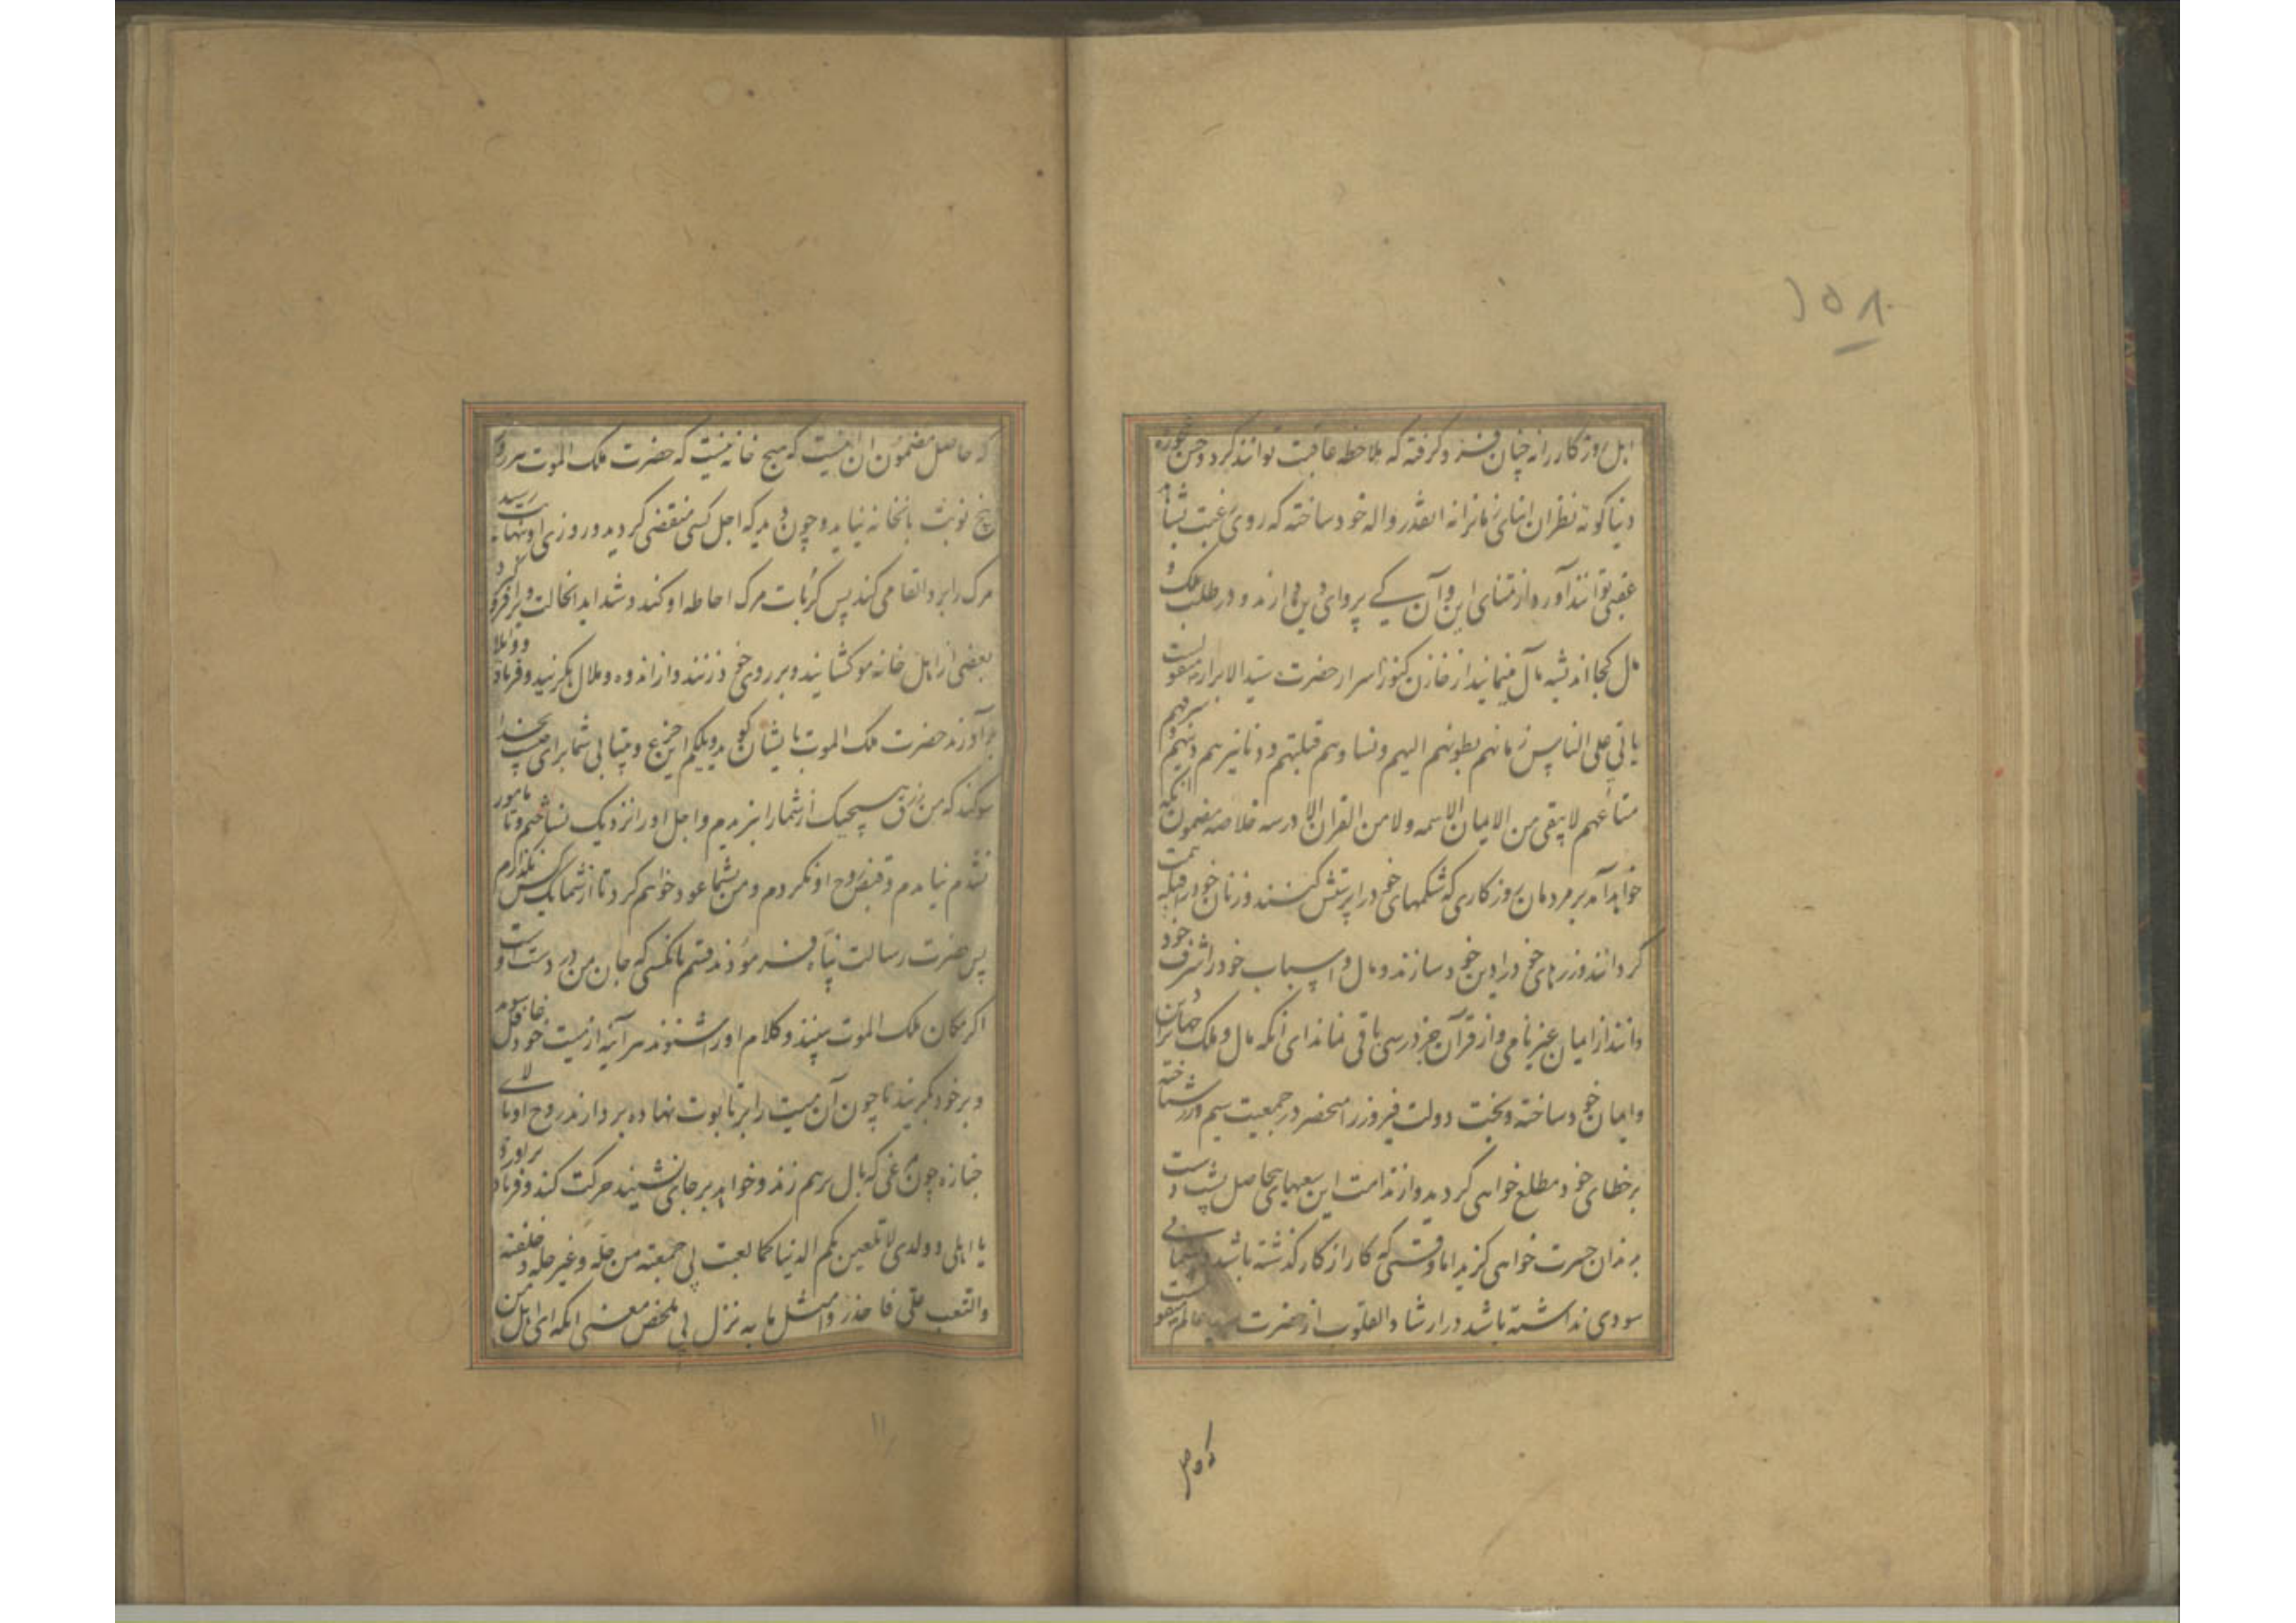 ۱۵۸
اهل روزگار را نه چنان فرو گرفته که ملاحظه عاقبت توانند کرد و حسن عجوزه
دنیا کوته نظران ابنای زمانرا نه انقدر واله خود ساخته که روی رغبت بشاهد
عقبی توانند آورد از تمنای این و آن کے پروای دین دارند و در طلب ملک و
مال کجا اندیشه مآل مینمایند از خازن کنوز اسرار حضرت سید الابرار منقولست
یاتی علی الناس زمانهم بطونهم الیهم و نساوهم قبلتهم و دنانیرهم دینهم و شرفهم
متاعهم لا یبقی من الایمان الا اسمه و لا من القران الا درسه خلاصه مضمون انکه
خواهد آمد بر مردمان روزکاری که شکمهای خود را پرستش کنند و زنان خود را قبله همت
کردانند و زرهای خود را دین خود سازند و مال و اسباب خود را شرف خود
دانند از ایمان غیر نامی و از قرآن جز درسی باقی نماند ای انکه مال و ملک جهانرا دین
و ایمان خود ساخته و بخت دولت فیروز را منحصر در جمعیت سیم و زر شناخته
بر خطای خود مطلع خواهی کردید و از ندامت این سعیهای بیحاصل پشت دست
بدندان حسرت خواهی کزید اما وقتی که کار از کار کذشته باشد و پشیمانی
سودی نداشته باشد در ارشاد القلوب از حضرت سید عالم منقولست
که حاصل مضمون ان انیست که هیچ خانه نیست که حضرت ملک الموت هر روز
پنج نوبت بانخانه نیاید و چون دید که اجل کسی منقضی کردید و روزی او بنهایت رسید
مرک را بر او القا می کند پس کربات مرک احاطه او کند و شداید انحالت ویرا فرو کیرد
بعضی از اهل خانه مو کشایند و بر روی خود زنند و از اندوه و ملال بکریند و فریاد و واویلا
بر آورند حضرت ملک الموت بایشان کوید ویلکم این جزع و بیتابی شما برای چیست بخدا
سوکند که من رزق هیچیک از شما را نبریدم و اجل او را نزدیک نساختم و تا مامور
نشدم نیامدم و قبض روح او نکردم و من بشما عود خواهم کرد تا از شما یک کس نکذارم
پس حضرت رسالت پناه فرمودند قسم بانکسی که جان من در دست اوست
اکر مکان ملک الموت ببینند و کلام او را شنوند هر آینه از میت خود غافل شوند
و بر خود بکریند تا چون آن میت را بر تابوت نهاده بر دارند روح او بالای
جنازه چون مرغی که بال بر هم زند و خواهد بر جای نشیند حرکت کند و فریاد بر اورد
یا اهلی و ولدی لا تلعبن بکم الدنیا کما لعبت بی جمعته من حله و غیر حله و خلفته
و التعب علی فاحذروا مثل ما به نزل بی ملخص معنی انکه ای اهل من